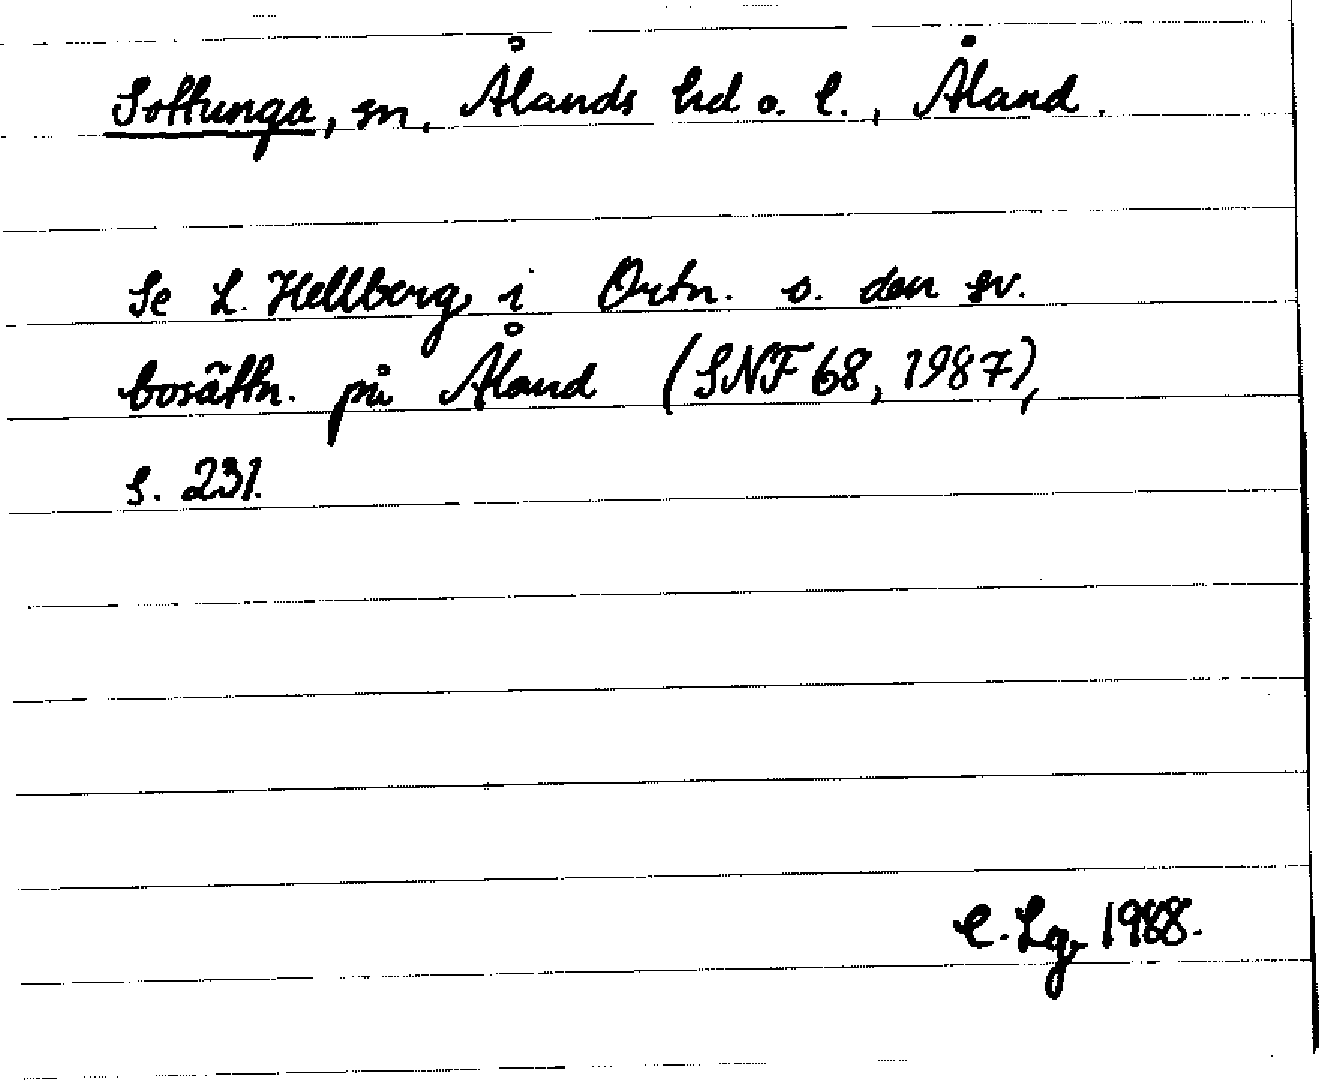 Sottunga, sn, Ålands hd o. l., Åland.
Se L. Hellberg i Ortn. o. den sv.
bosättn. på Åland (SNF 68, 1987),
s. 231.
C. Lg, 1988.